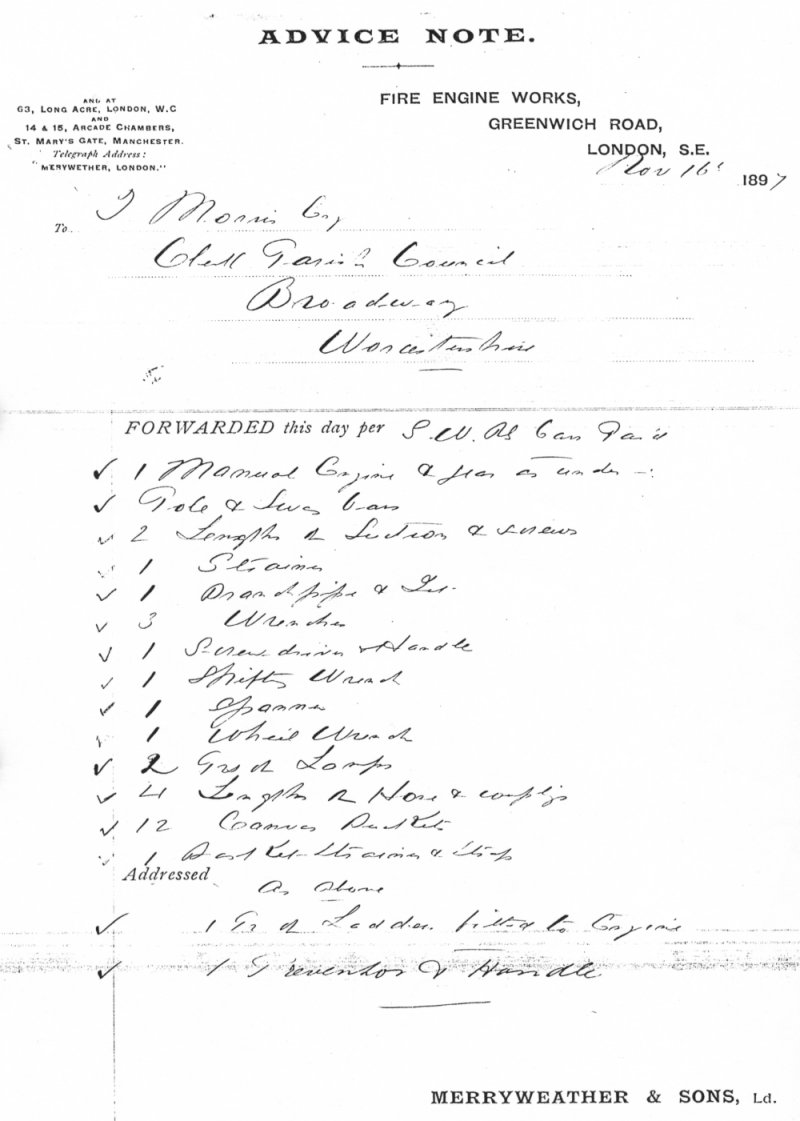 ADVICE NOTE.
AND AT
63, LONG ACRE, LONDON, W.C
AND
14 & 15, ARCADE CHAMBERS,
ST. MARY'S GATE, MANCHESTER.
Telegraph Address:
"MERYWETHER, LONDON."
FIRE ENGINE WORKS,
GREENWICH ROAD,
LONDON, S.E.
Nov 16 1897
To. Morris Esq
Clerk Parish Council
Broadway
Worcestershire
FORWARDED this day per G.W.R Carr Paid
1 Manual Engine & gear as under
Pole & Sway bars
2 Lengths of Suction & screws
1 Strainer
1 Branch pipe &
3 Wrenches
1 Screwdriver & Handle
1 Shifting Wrench
1 Spanner
1 Wheel Wrench
2 Prs of Lamps
4 Lengths of Hose & couplgs
12 Canvas Buckets
1 Basket Strainer & Strap
Addressed
As above
1 Pr of Ladders fitted to Engine
1 Preventor & Handle
MERRYWEATHER & SONS, Ld.